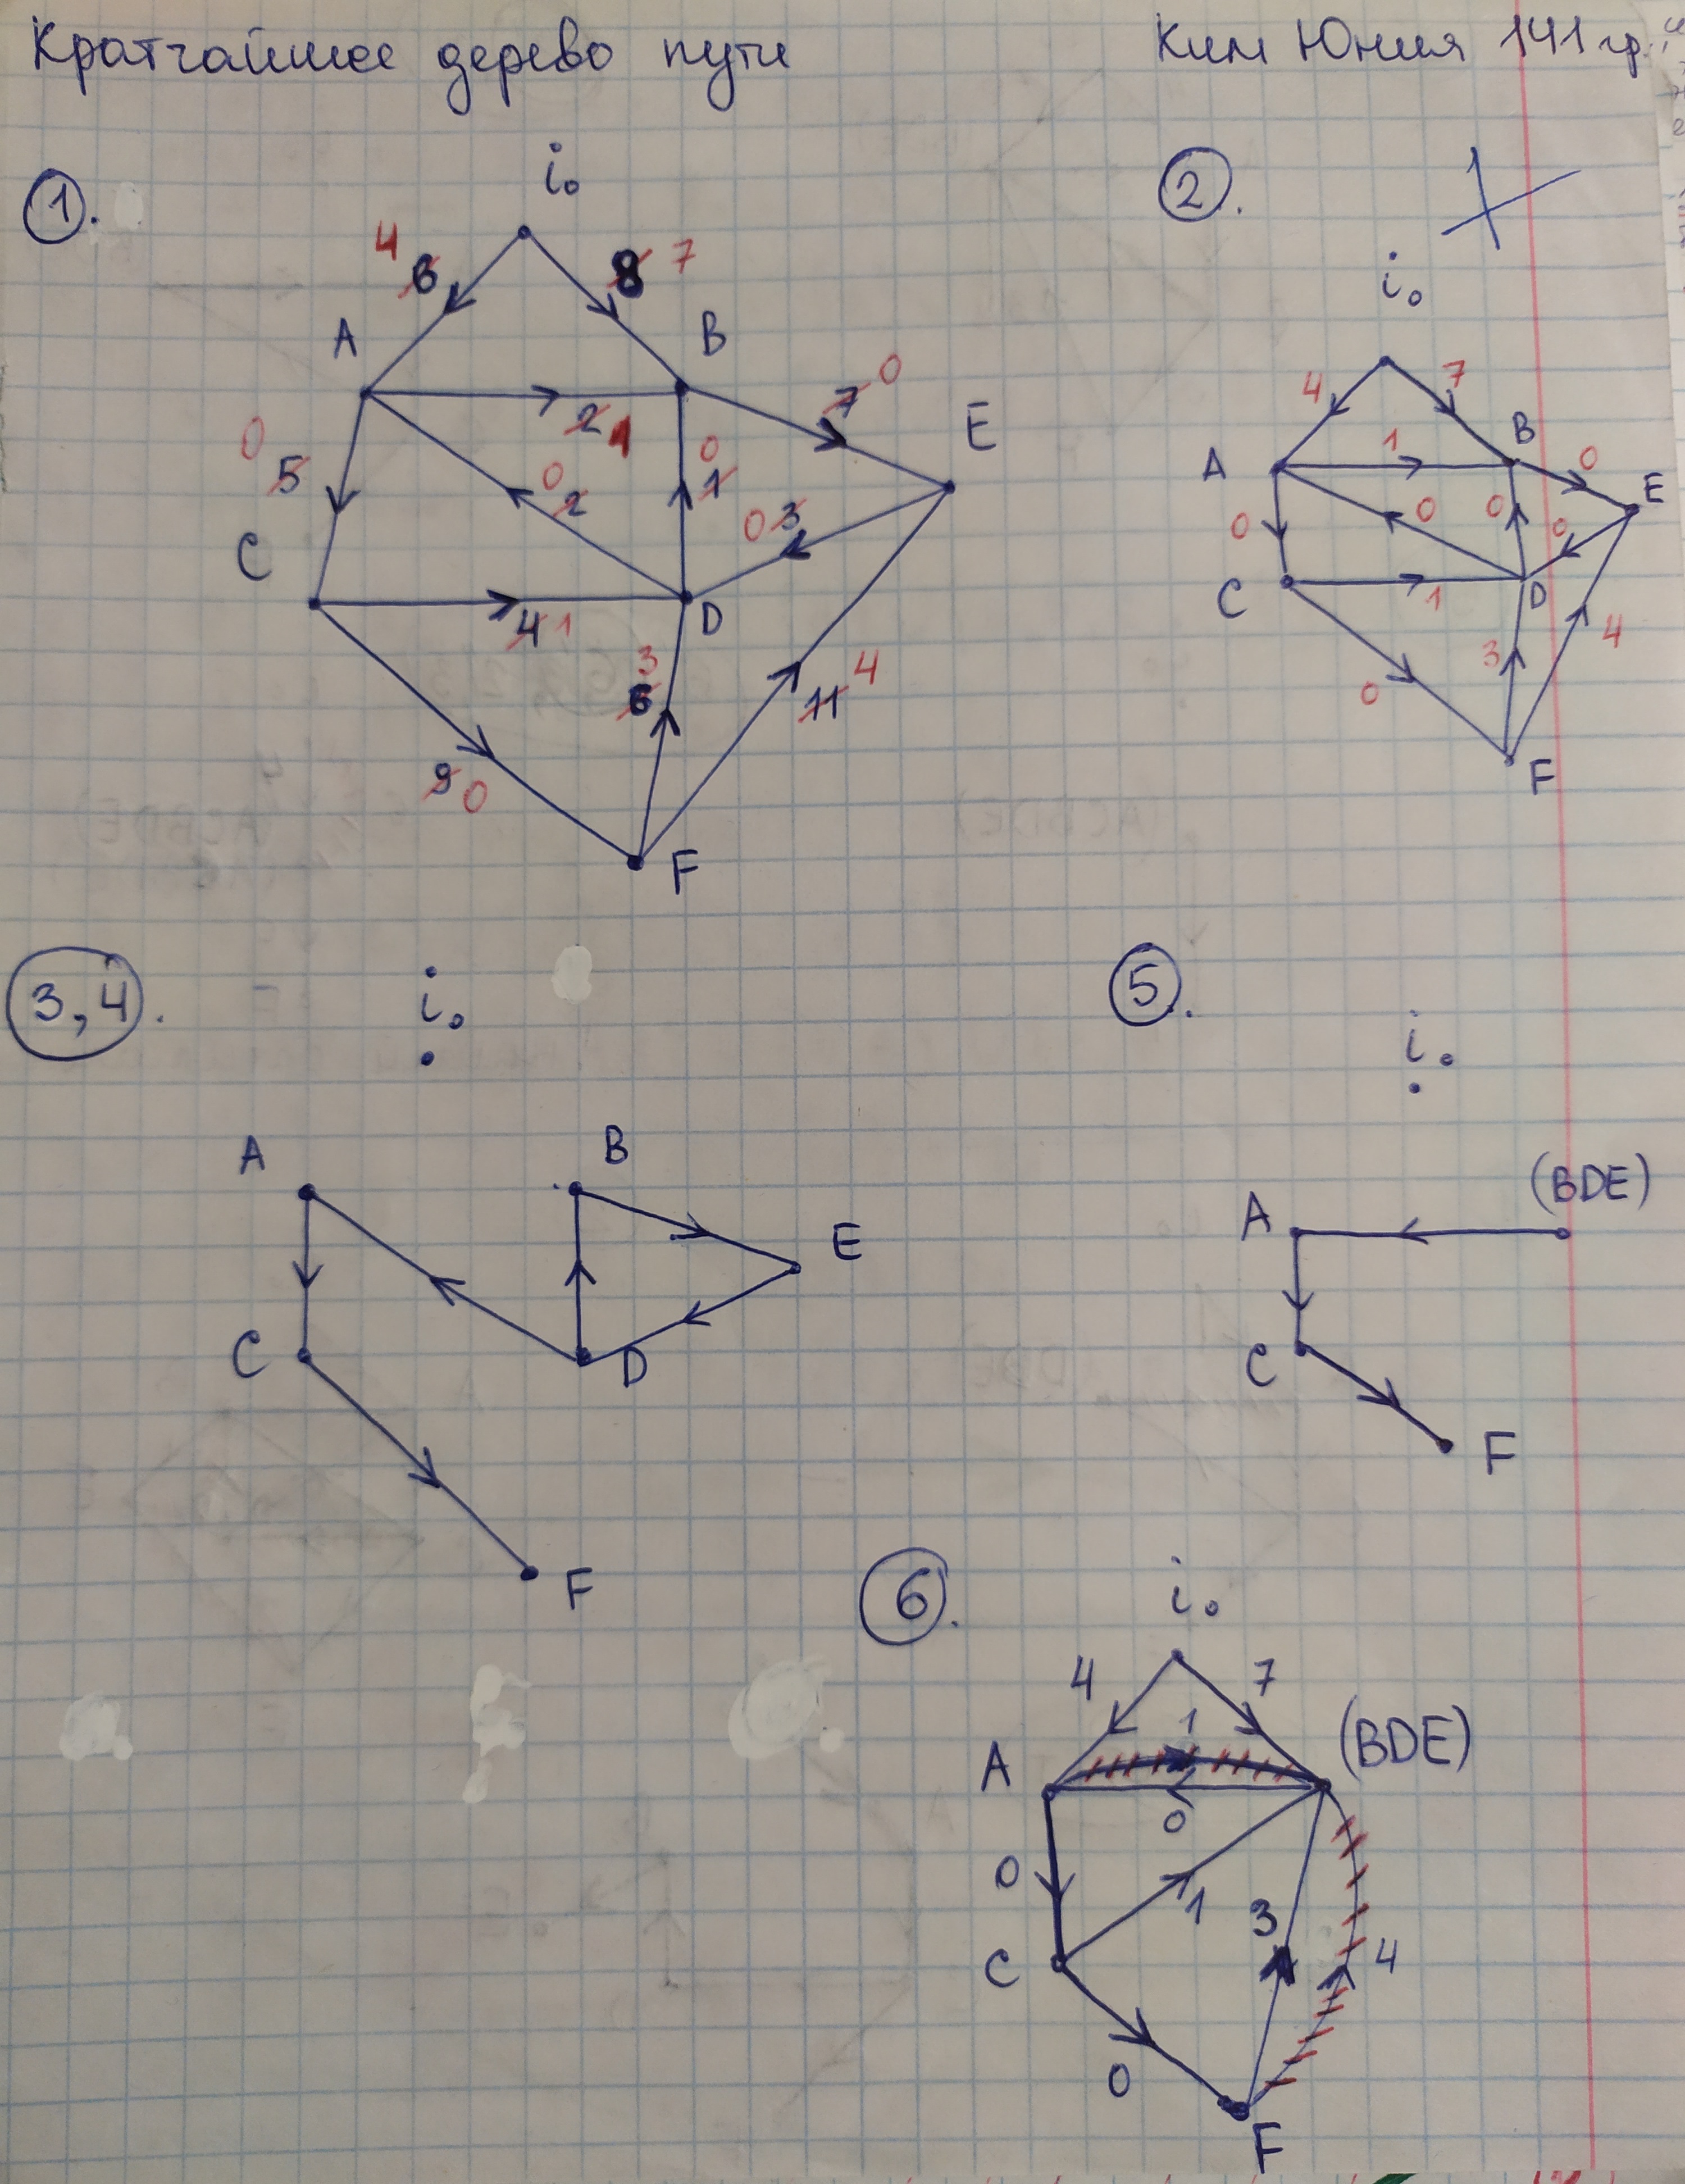 Кратчайшее дерево пути Ким Юния 141 гр.
1. i₀
4 6 8 7
A B
2 1 7 0 E
0 5 0 2 0 1 0 3
C D
4 1
3 6 11 4
9 0
F
2. i₀
4 7
A 1 B 0 E
0 0 0 0
C 1 D
0 3 4
F
3,4. i₀
A B
E
C D
F
5. i₀
A (BDE)
C
F
6. i₀
4 7
A 1 (BDE)
0
0 1 3
C 4
0
F